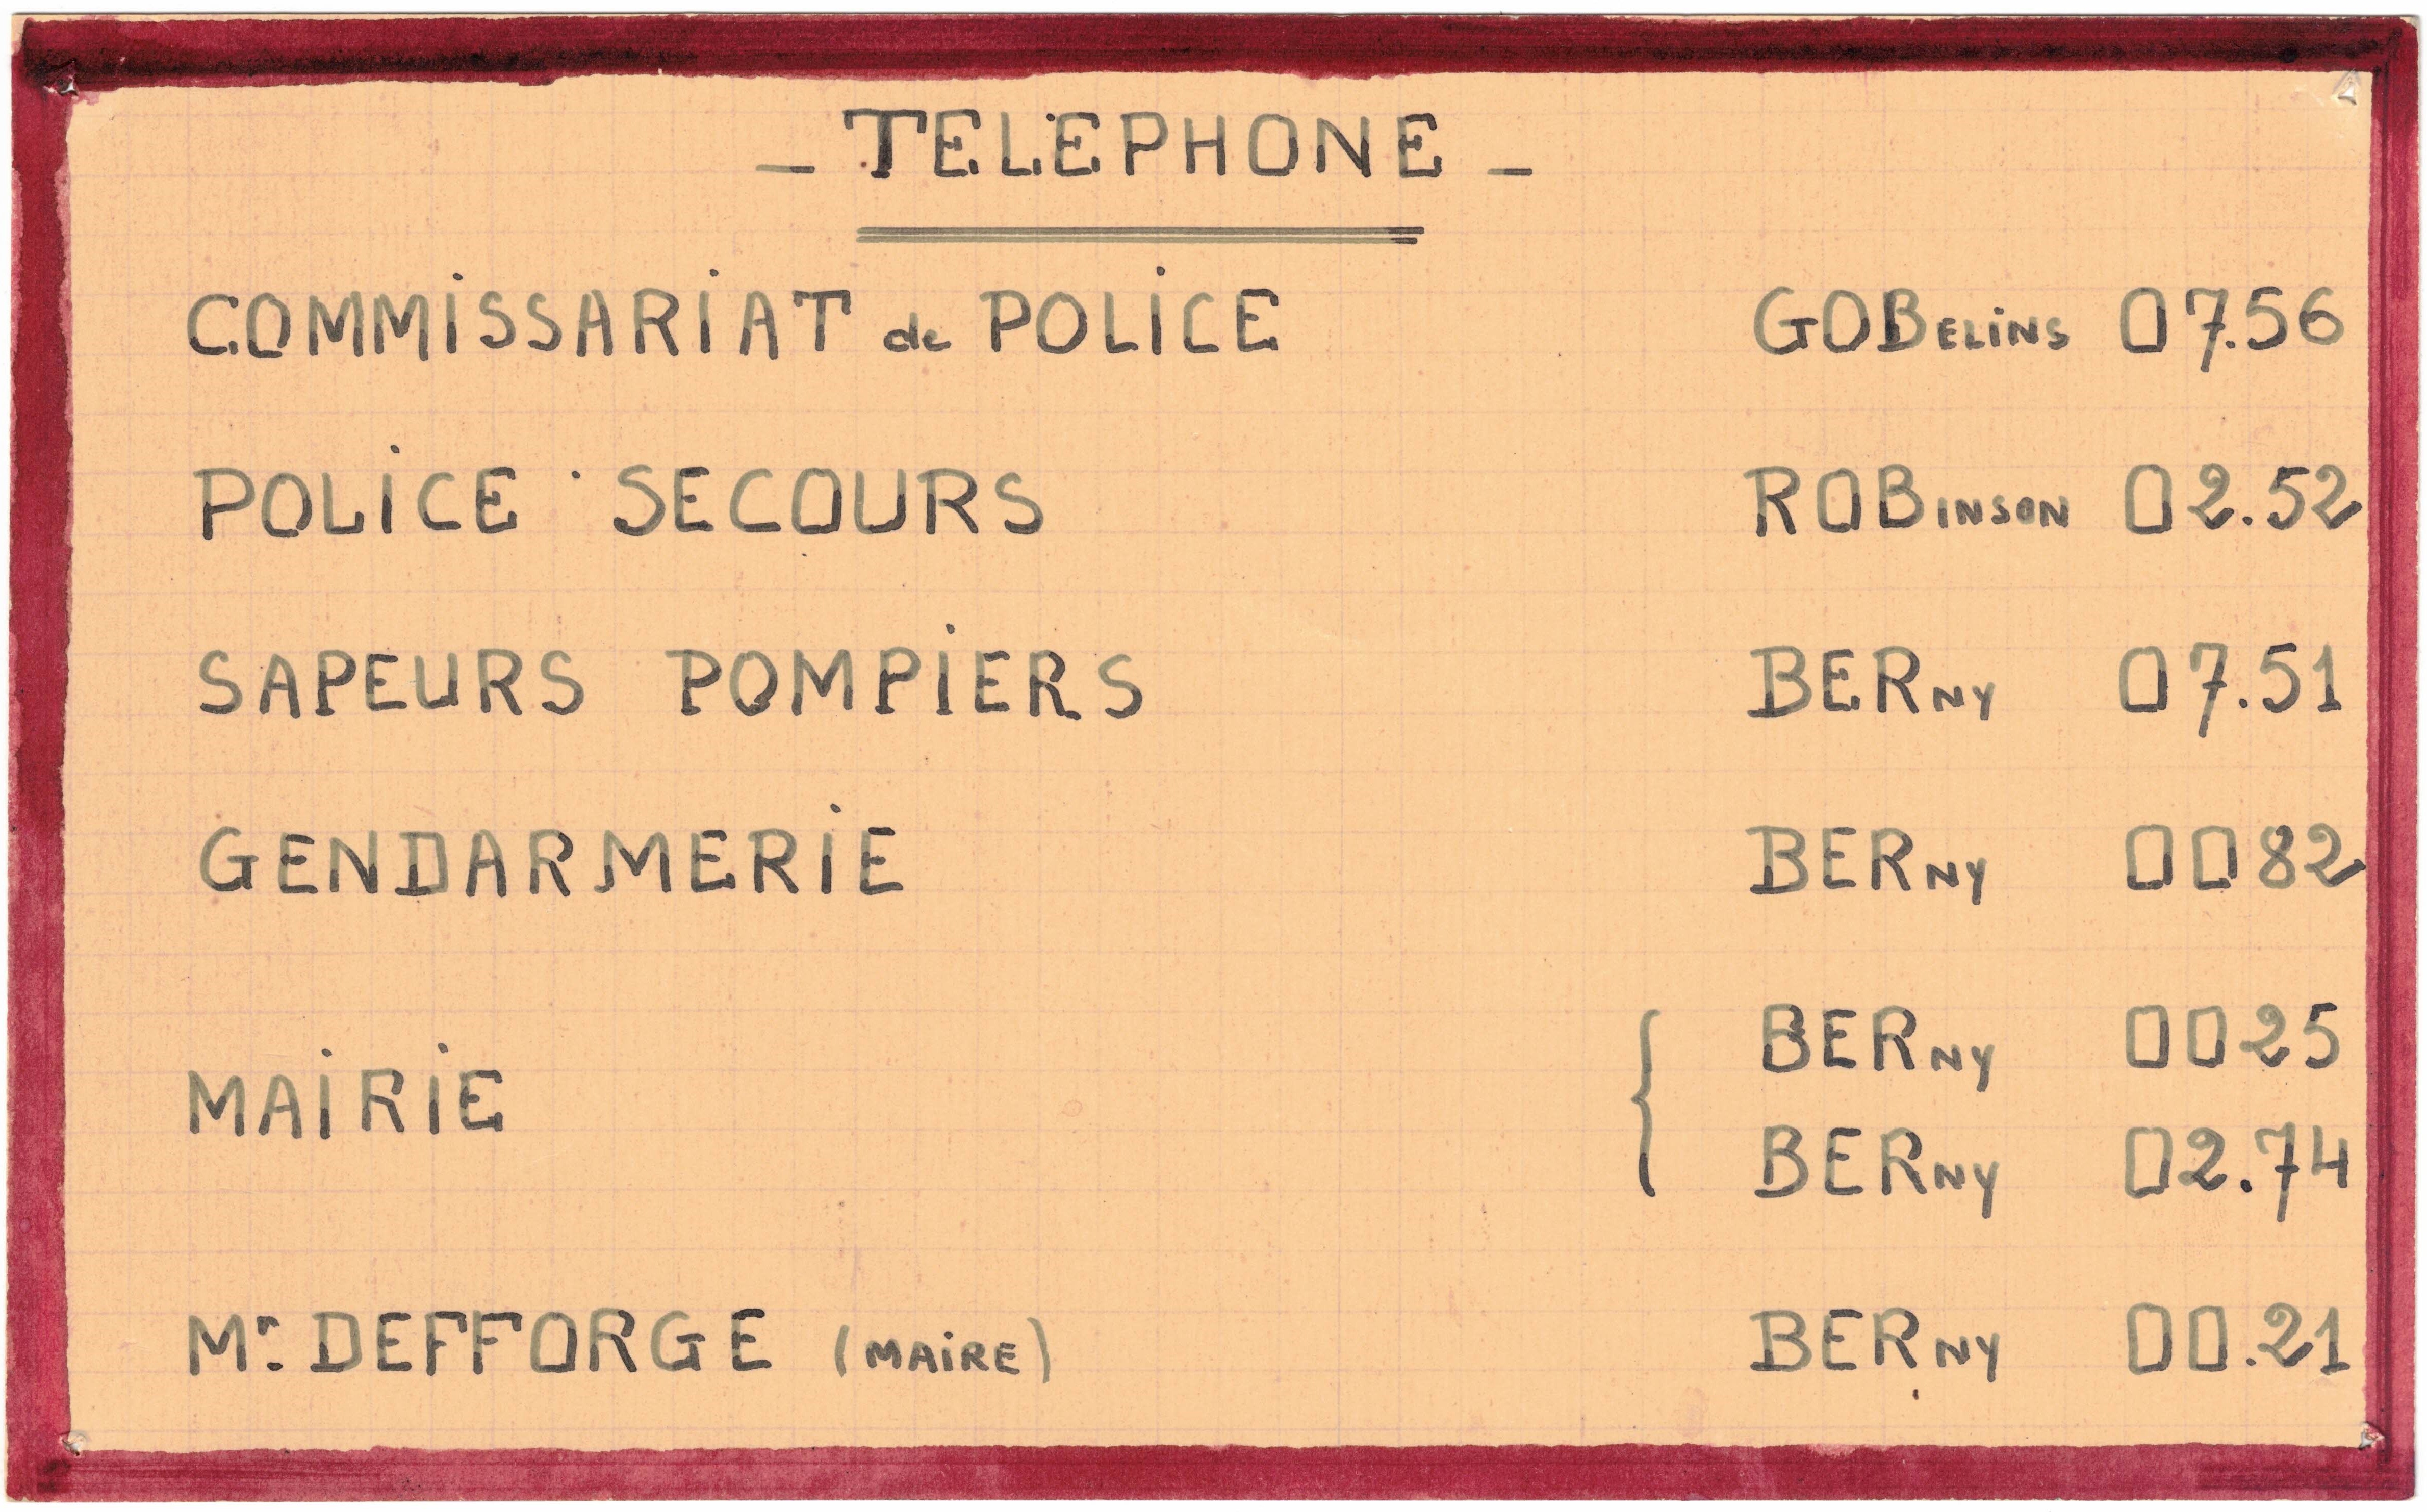 - TELEPHONE -
COMMiSSARiAT de POLiCE GOBELiNS 07.56
POLiCE SECOURS ROBINSON 02.52
SAPEURS POMPiERS BERNY 07.51
GENDARMERiE BERNY 0082
MAiRiE { BERNY 0025
BERNY 02.74
Mr DEFFORGE (MAiRE) BERNY 00.21